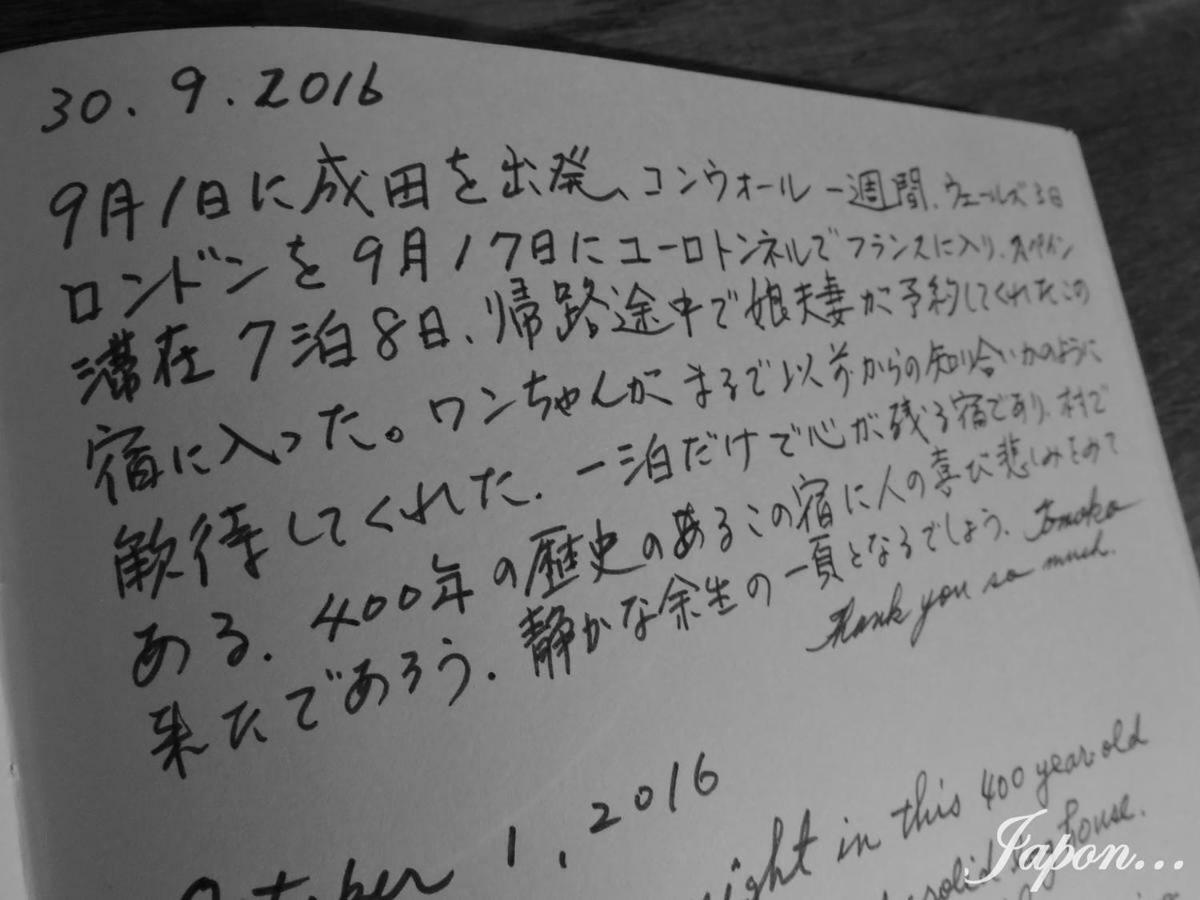 30.9.2016
9月1日に成田を出発、コンウォール一週間、ウェールズ3日
ロンドンを9月17日にユーロトンネルでフランスに入り、スペイン
滞在7泊8日、帰路途中で娘夫妻が予約してくれたこの
宿に入った。ワンちゃんがまるで以前からの知り合いかのように
歓待してくれた。一泊だけで心が残る宿であり、村で
ある。400年の歴史のあるこの宿に人の喜び悲しみをのて
来たであろう。静かな余生の一頁となるでしょう。Tomoko
Thank you so much.
October 1, 2016
night in this 400 year old
solid house.
Japon...